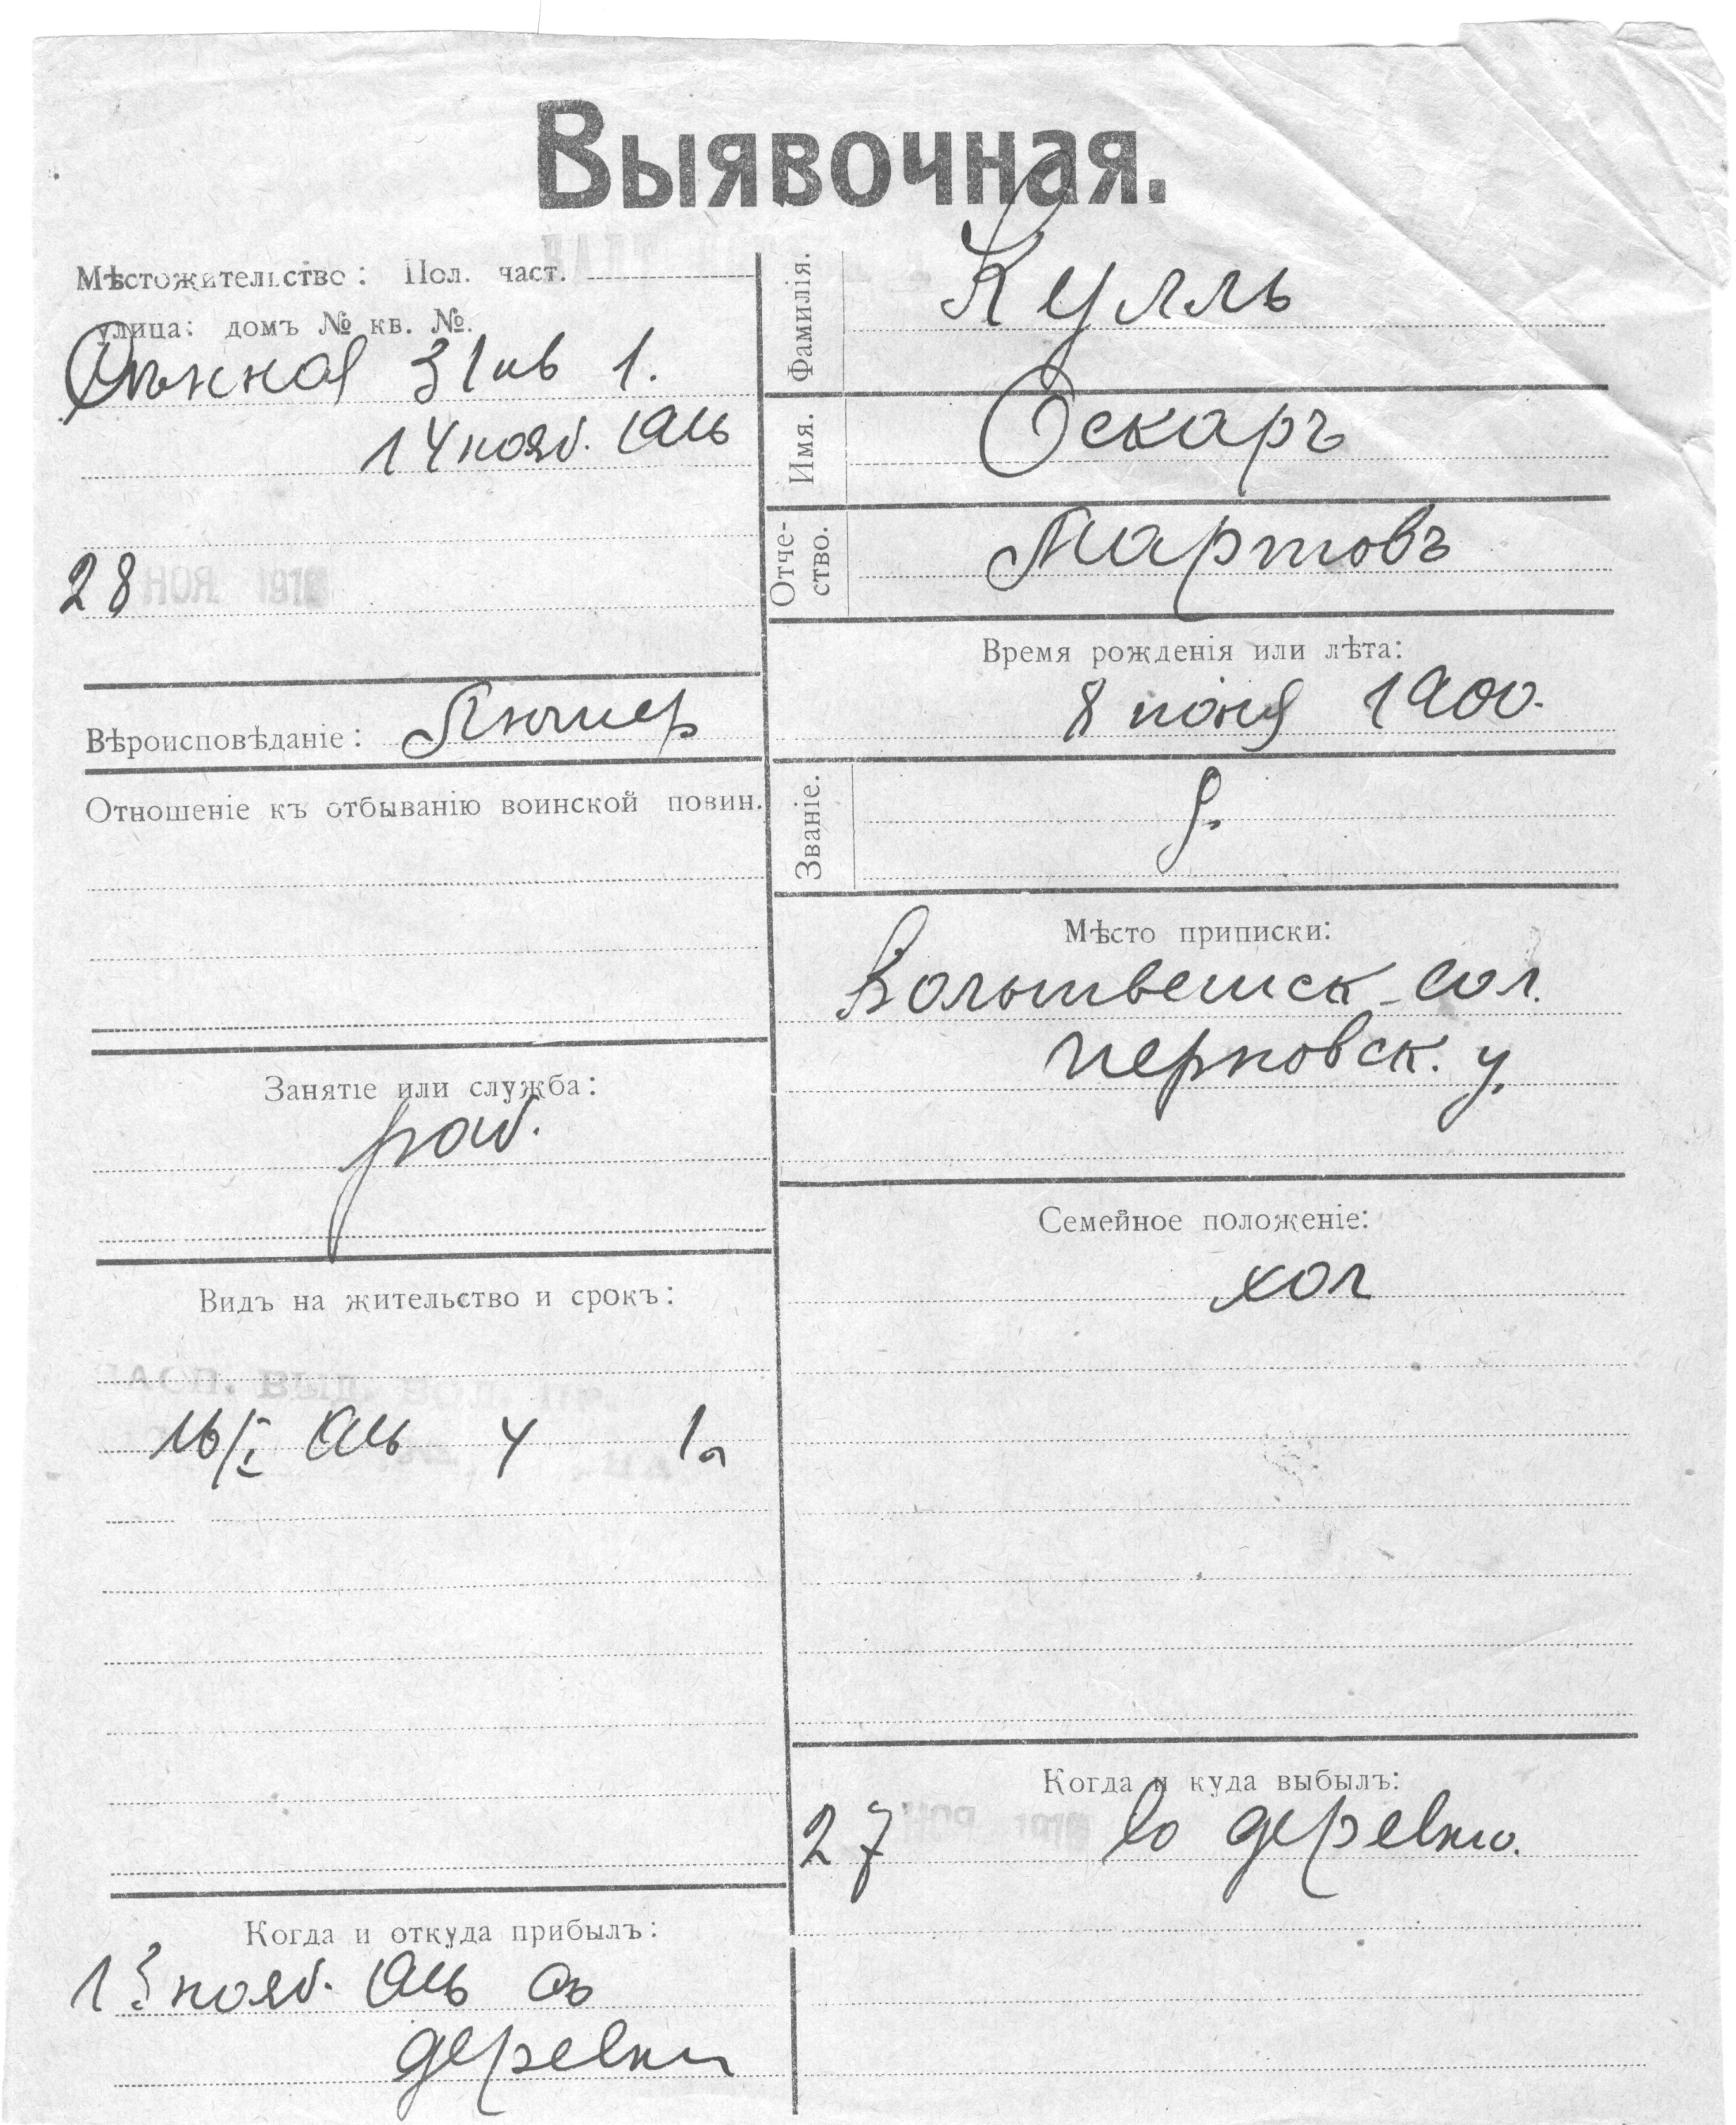 Выявочная.
Мѣстожительство: Пол. част.
улица: домъ № кв. №.
31 кв 1.
14 нояб. 1916
28 НОЯ 191
Вѣроисповѣданіе: Лютер
Отношеніе къ отбыванію воинской повин.
Занятіе или служба:
раб.
Видъ на жительство и срокъ:
АСП. ВЫД. ВОЛ. ПР.
16/I 916 4 1а
Когда и откуда прибылъ:
13 нояб. 1916 съ
деревни
Фамилія. Кулль
Имя. Оскаръ
Отче-
ство. Мартовъ
Время рожденія или лѣта:
8 іюня 1900.
Званіе.
Мѣсто приписки:
вол.
перновск. у.
Семейное положеніе:
хол
Когда и куда выбылъ:
27 НОЯ 191 въ деревню.